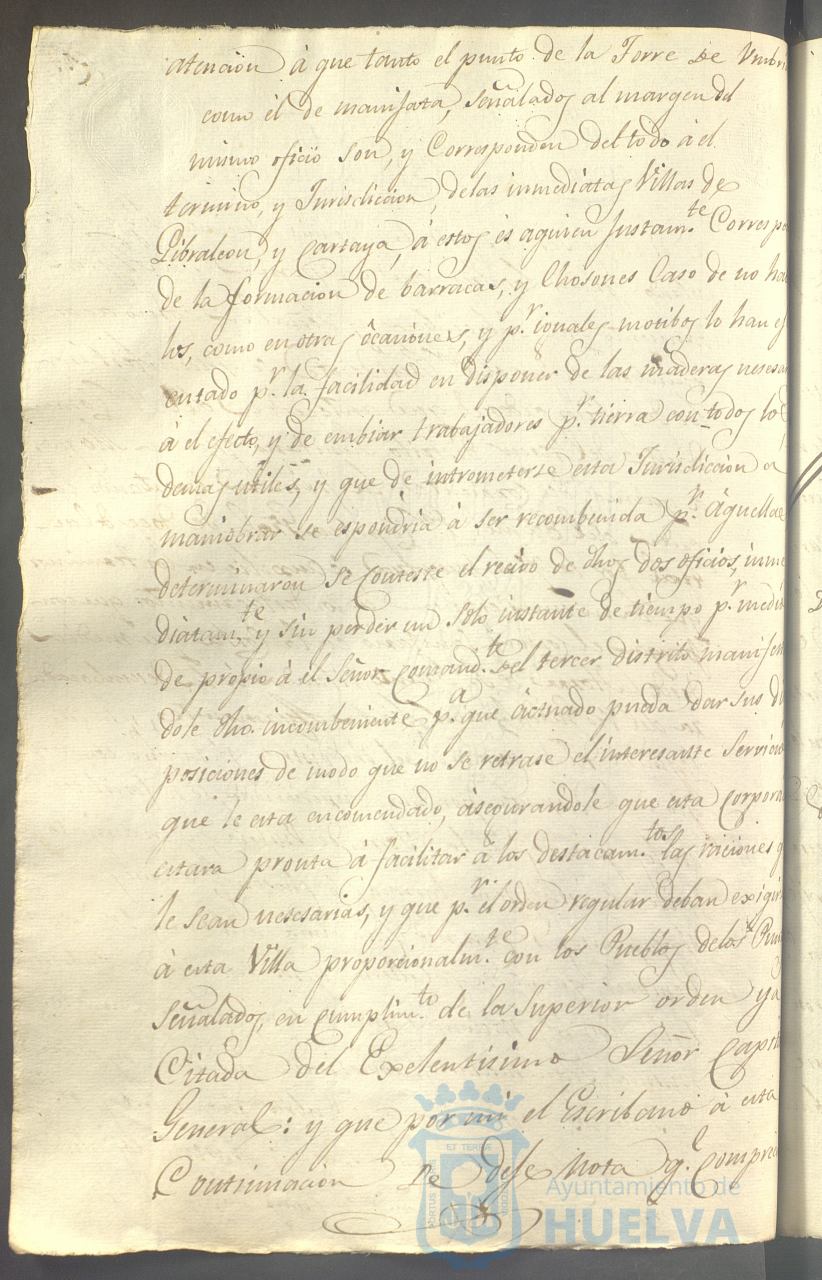 atencion à que tanto el punto de la Torre de Umbri
como èl de manijata, señalados al margen del
mismo oficio son, y Corresponden del todo à el
termino, y Jurisdiccion, delas inmediatas Villas de
Gibraleon, y Cartaya, à estos és aquien Justam.te Correspo
de la formacion de barracas, y Chosones Caso de no ha
los, como en otras ôcaciones, y p.r iguales motibos lo han ej
cutado p.r la facilidad en disponer de las maderas nesesar
à el efecto, y de embiar trabajadores p.r tierra con todos lo
demas utiles, y que de intrometerse esta Jurisdiccion a
maniobrar se espondria à ser recombenida p.r aquellas
determinaron se conteste el recivo de dhos dos oficios, inme
diatam.te y sin perder un solo instante de tiempo p.r medi
de propio à el Señor Comand.te del tercer distrito manifes
dole dho. incombeniente p.a que áctuado pueda dar sus di
posiciones de modo que no se retrase el interesante Servicio
que le esta encomendado, àsegurandole que esta Corpora
estara pronta à facilitar à los destacam.tos las raciones q
le sean nesesarias, y que p.r el orden regular deban exigir
à esta Villa proporcionalm.te con los Pueblos delos Pun
señalados, en cumplim.to de la Superior orden ya
Citada del Exelentisimo Señor Capit
General: y que por mi el Escribano à esta
Continuacion se dese Nota q.e Compre
ET TERRÆ
PORTUS
Ayuntamiento de
HUELVA